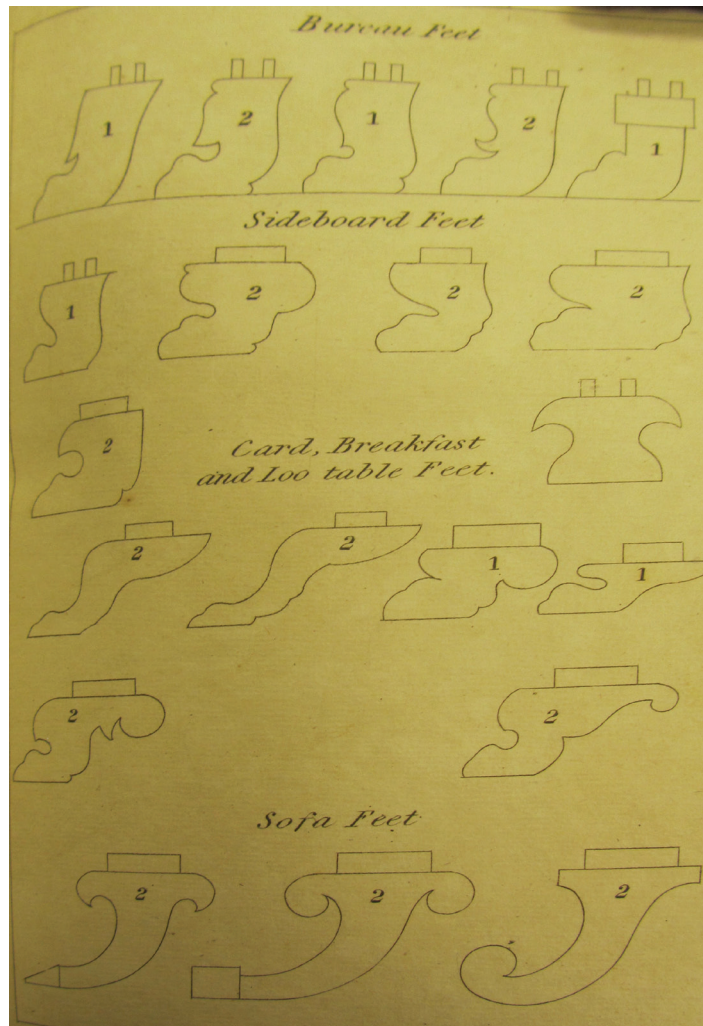 Bureau Feet
1 2 1 2 1
Sideboard Feet
1 2 2 2
2
Card, Breakfast
and Loo table Feet.
2 2 1 1
2 2
Sofa Feet
2 2 2